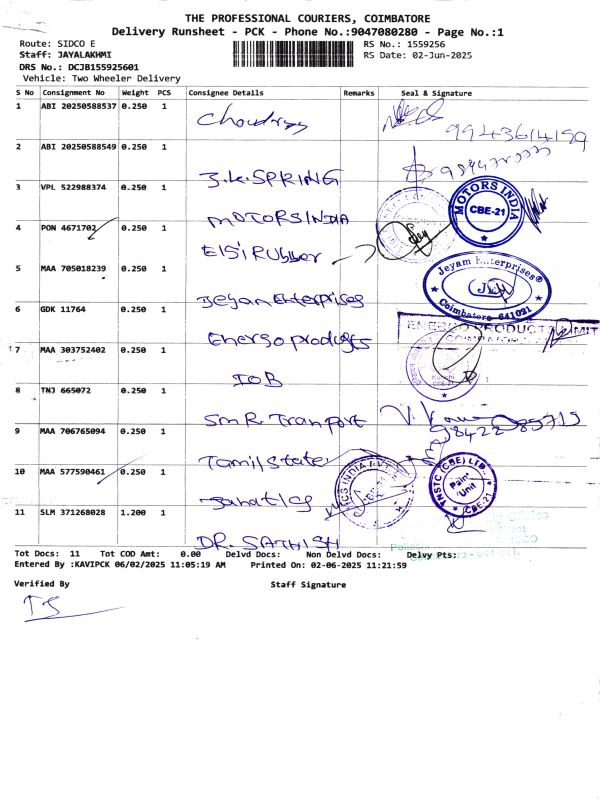 THE PROFESSIONAL COURIERS, COIMBATORE
Delivery Runsheet - PCK - Phone No.:9047080280 - Page No.:1
Route: SIDCO E
RS No.: 1559256
Staff: JAYALAKHMI
RS Date: 02-Jun-2025
DRS No.: DCJB155925601
Vehicle: Two Wheeler Delivery
S No Consignment No Weight PCS Consignee Details Remarks Seal & Signature
1 ABI 20250588537 0.250 1
Choudray
9943614159
2 ABI 20250588549 0.250 1
J.K.SPRING
3 VPL 522988374 0.250 1
MOTORSINDIA
MOTORS INDIA
CBE-21
4 PON 4671702 0.250 1
Elsi Rubber
5 MAA 705018239 0.250 1
Jeyam Enterprises
Jeyam Enterprises®
Coimbatore 641021
6 GDK 11764 0.250 1
Energo products
7 MAA 303752402 0.250 1
IOB
8 TNJ 665072 0.250 1
SMR. Tranport
9 MAA 706765094 0.250 1
Tamil state
TNSTC (CBE) LTD.
Paint Unit
CBE-21
10 MAA 577590461 0.250 1
11 SLM 371268028 1.200 1
DR. SATHISH
Tot Docs: 11 Tot COD Amt: 0.00 Delvd Docs: Non Delvd Docs: Delvy Pts:
Entered By :KAVIPCK 06/02/2025 11:05:19 AM Printed On: 02-06-2025 11:21:59
Verified By Staff Signature